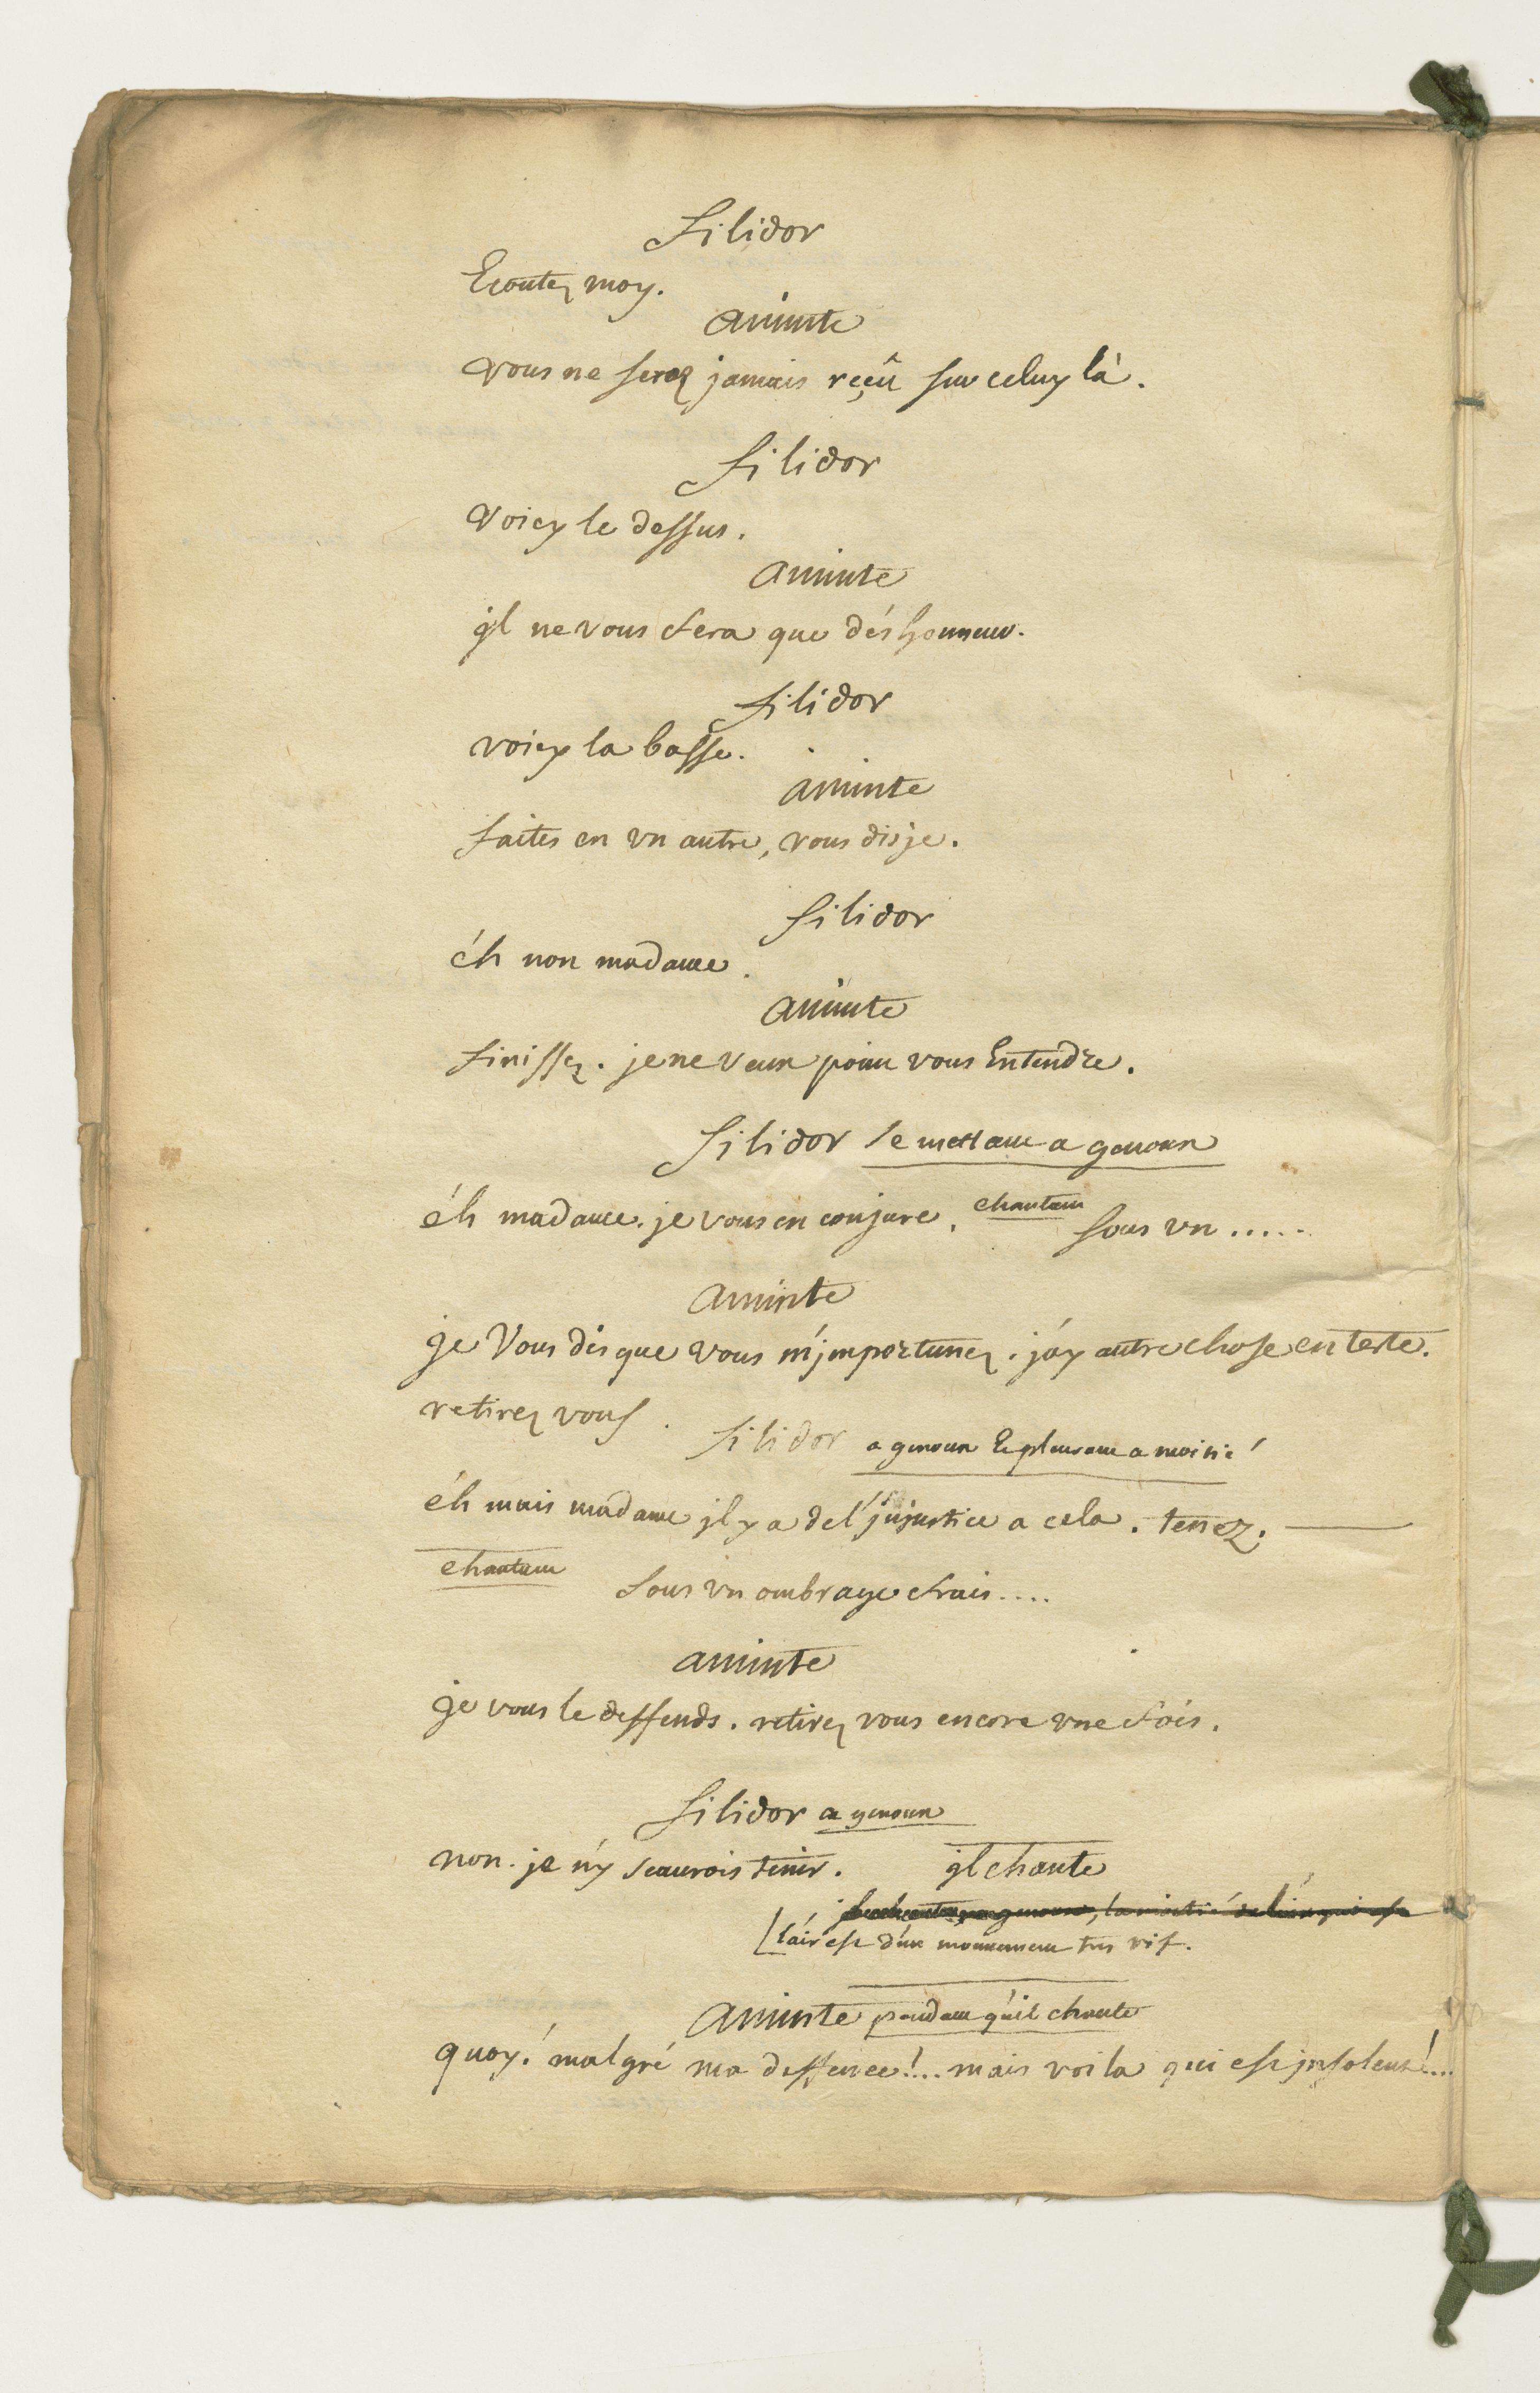 filidor
Ecoutez moy.
aminte
vous ne serez jamais reçû sur celuy là.
filidor
Voicy le dessus.
aminte
jl ne vous fera que déshonneur.
filidor
voicy la basse.
aminte
faites en vn autre, vous disje.
filidor
éh non madame.
aminte
finissez. je ne veux point vous Entendre.
filidor se mettant a genoux
éh madame. je vous en conjure. chantant sous vn .....
aminte
je Vous dis que vous m'jmportunez. j'ay autre chose en teste.
retirez vous.
filidor a genoux Et pleurant a moitié
éh mais madame jl y a de l'jnjustice a cela. tenez.
chantant sous vn ombrage frais....
aminte
je vous le deffends. retirez vous encore vne fois.
filidor a genoux
non. je n'y scaurois tenir. jl chante
l'air est d'un mouuement tres vif.
aminte pendant qu'il chante
quoy! malgré ma deffence!... mais voila qui est jnsolent!...